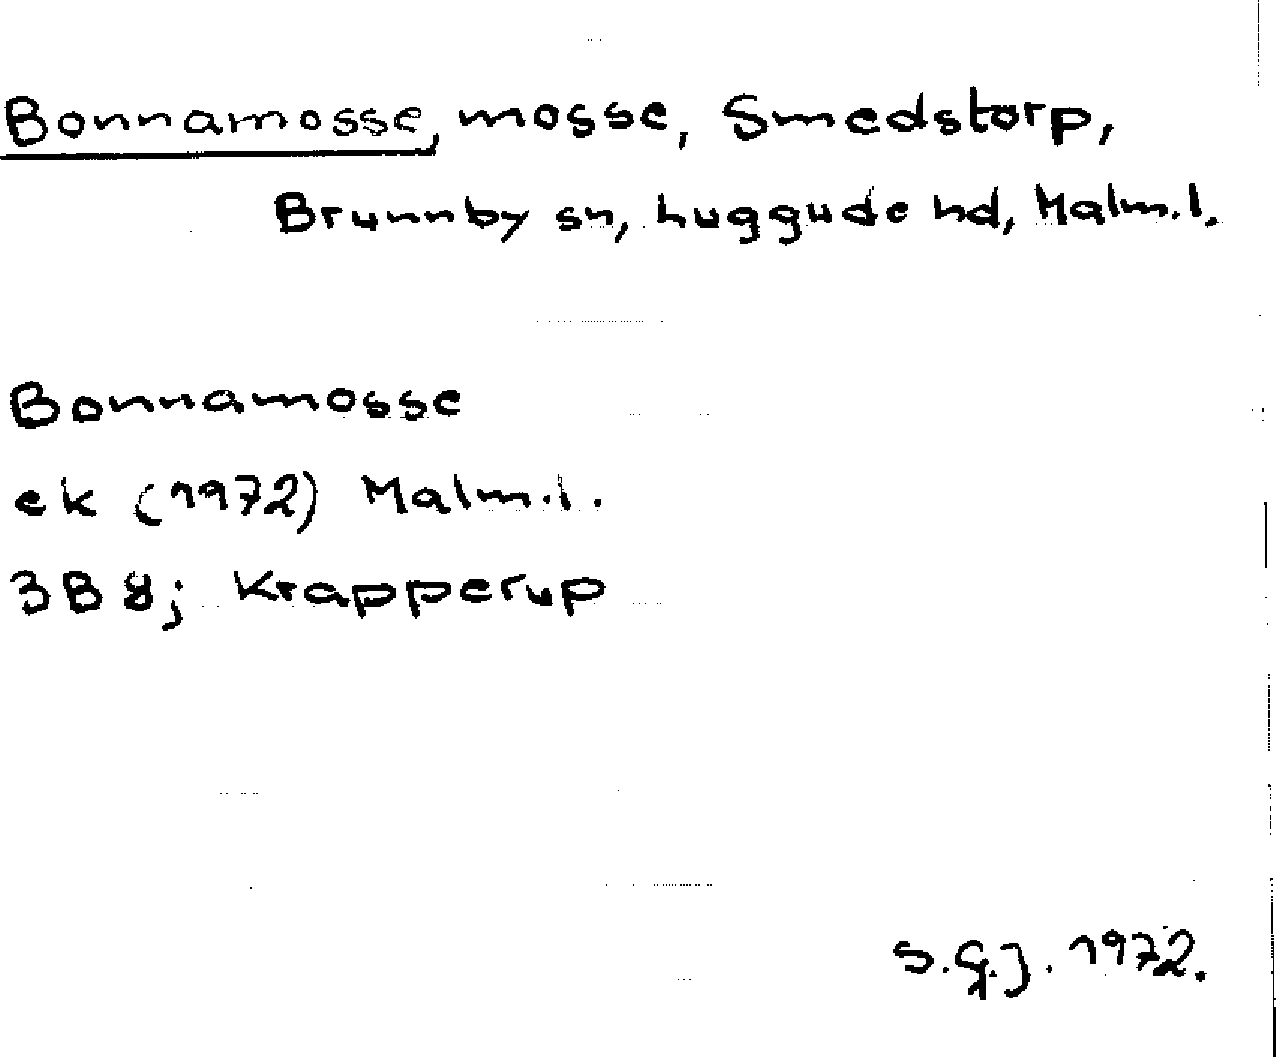 Bonnamosse, mosse, Smedstorp,
Brunnby sn, Luggude hd, Malm.l.
Bonnamosse
ek (1972) Malm.l.
3B 8j Krapperup
S.G.J. 1972.